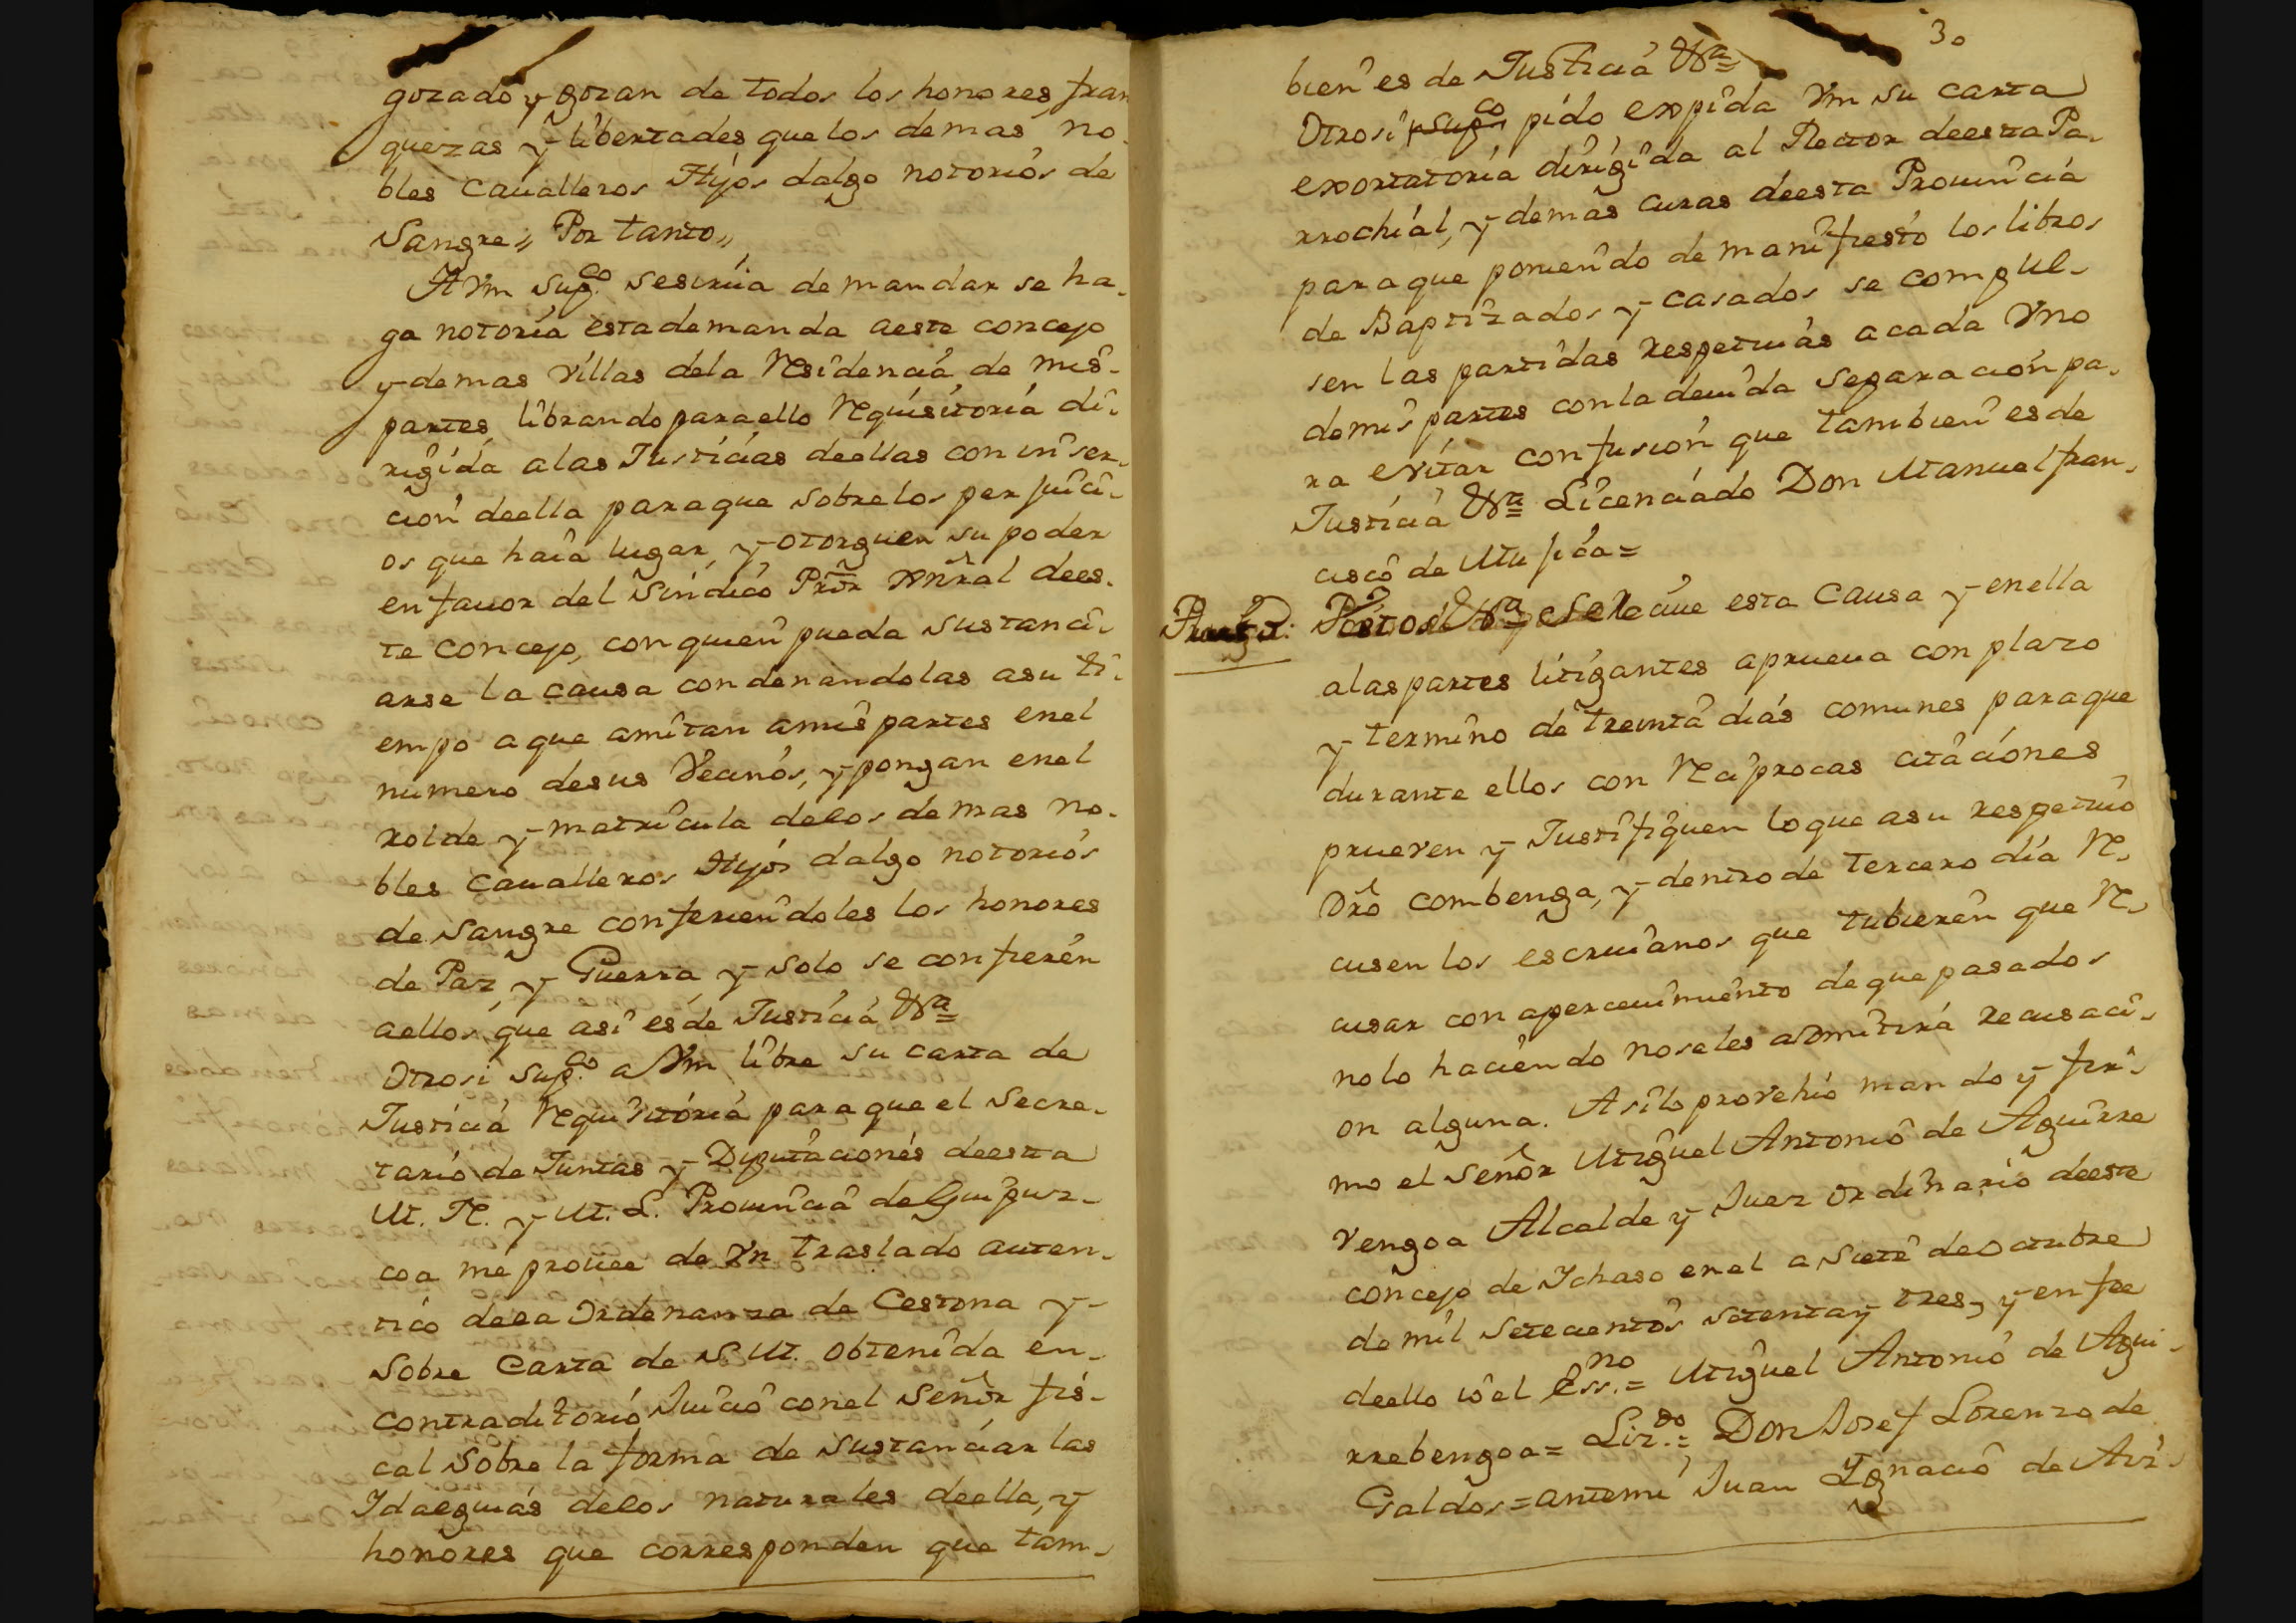 gozado y gozan de todos los honores fran
quezas y libertades que los demas no-
bles Caualleros Hijos dalgo notorios de
Sangre,, Por tanto,,
A Vm sup.co se sirua de mandar se ha-
ga notoria esta demanda a este concejo
y demas Villas de la Residencia de mis-
partes librando para ello Requisitoria di-
rigida a las Justicias de ellas con inser-
cion de ella para que sobre los perjuici-
os que haia lugar, y otorguen su poder
en fauor del Sindico Pror. xnral de es-
te Concejo, con quien pueda sustanci-
arse la causa condenandolas a su ti-
empo a que amitan a mis partes en el
numero de sus Vecinos, y pongan en el
rolde y matricula de los demas no-
bles Caualleros Hijos dalgo notorios
de Sangre confiriendoles los honores
de Paz, y Guerra, y solo se confieren
a ellos, que asi es de Justicia &a=
Otrosi sup.co a Vm libre su carta de
Justicia Requisitoria para que el Secre-
tario de Juntas y Diputaciones de esta
M. N. y M. L. Prouincia de Guipuz-
coa me prouee de Vn traslado auten-
tico de la Ordenanza de Cestona y-
Sobre Carta de S M. obtenida en-
contraditorio Juicio con el Señor fis-
cal Sobre la forma de sustanciar las
Idalguias de los naturales de ella, y
honores que corresponden que tam-
30
bien es de Justicia &a=
Otrosi sup.co pido expida Vm su carta
exortatoria dirigida al Rector de esta Pa-
rrochial, y demas curas de esta Prouincia
para que poniendo de manifiesto los libros
de Baptizados y casados se compul-
sen las partidas respetiuas a cada Vno
de mis partes con la deuida separacion pa-
ra evitar confusion que tambien es de
Justicia &a= Licenciado Don Manuel fran-
cisco de Mujica=
Por se Reciue esta Causa y en ella
a las partes litigantes a prueua con plazo
y termino de treinta dias comunes para que
durante ellos con Reciprocas citaciones
prueven y Justifiquen lo que a su respetiuo
Dro combenga, y dentro de tercero dia Re-
cusen los escriuanos que tubieren que Re-
cusar con aperceuimiento de que pasados
no lo haciendo no se les admitira recusaci-
on alguna. Asi lo provehio mando y fir-
mo el Señor Miguel Antonio de Aguirre
vengoa Alcalde y Juez ordinario de este
concejo de Ichaso en el a Siete de octubre
de mil setecientos setenta y tres, y en fee
de ello io el Ess.no= Miguel Antonio de Agui-
rrebengoa= Liz.do= Don Josef Lorenzo de
Galdos= ante mi Juan Ignacio de Ari-